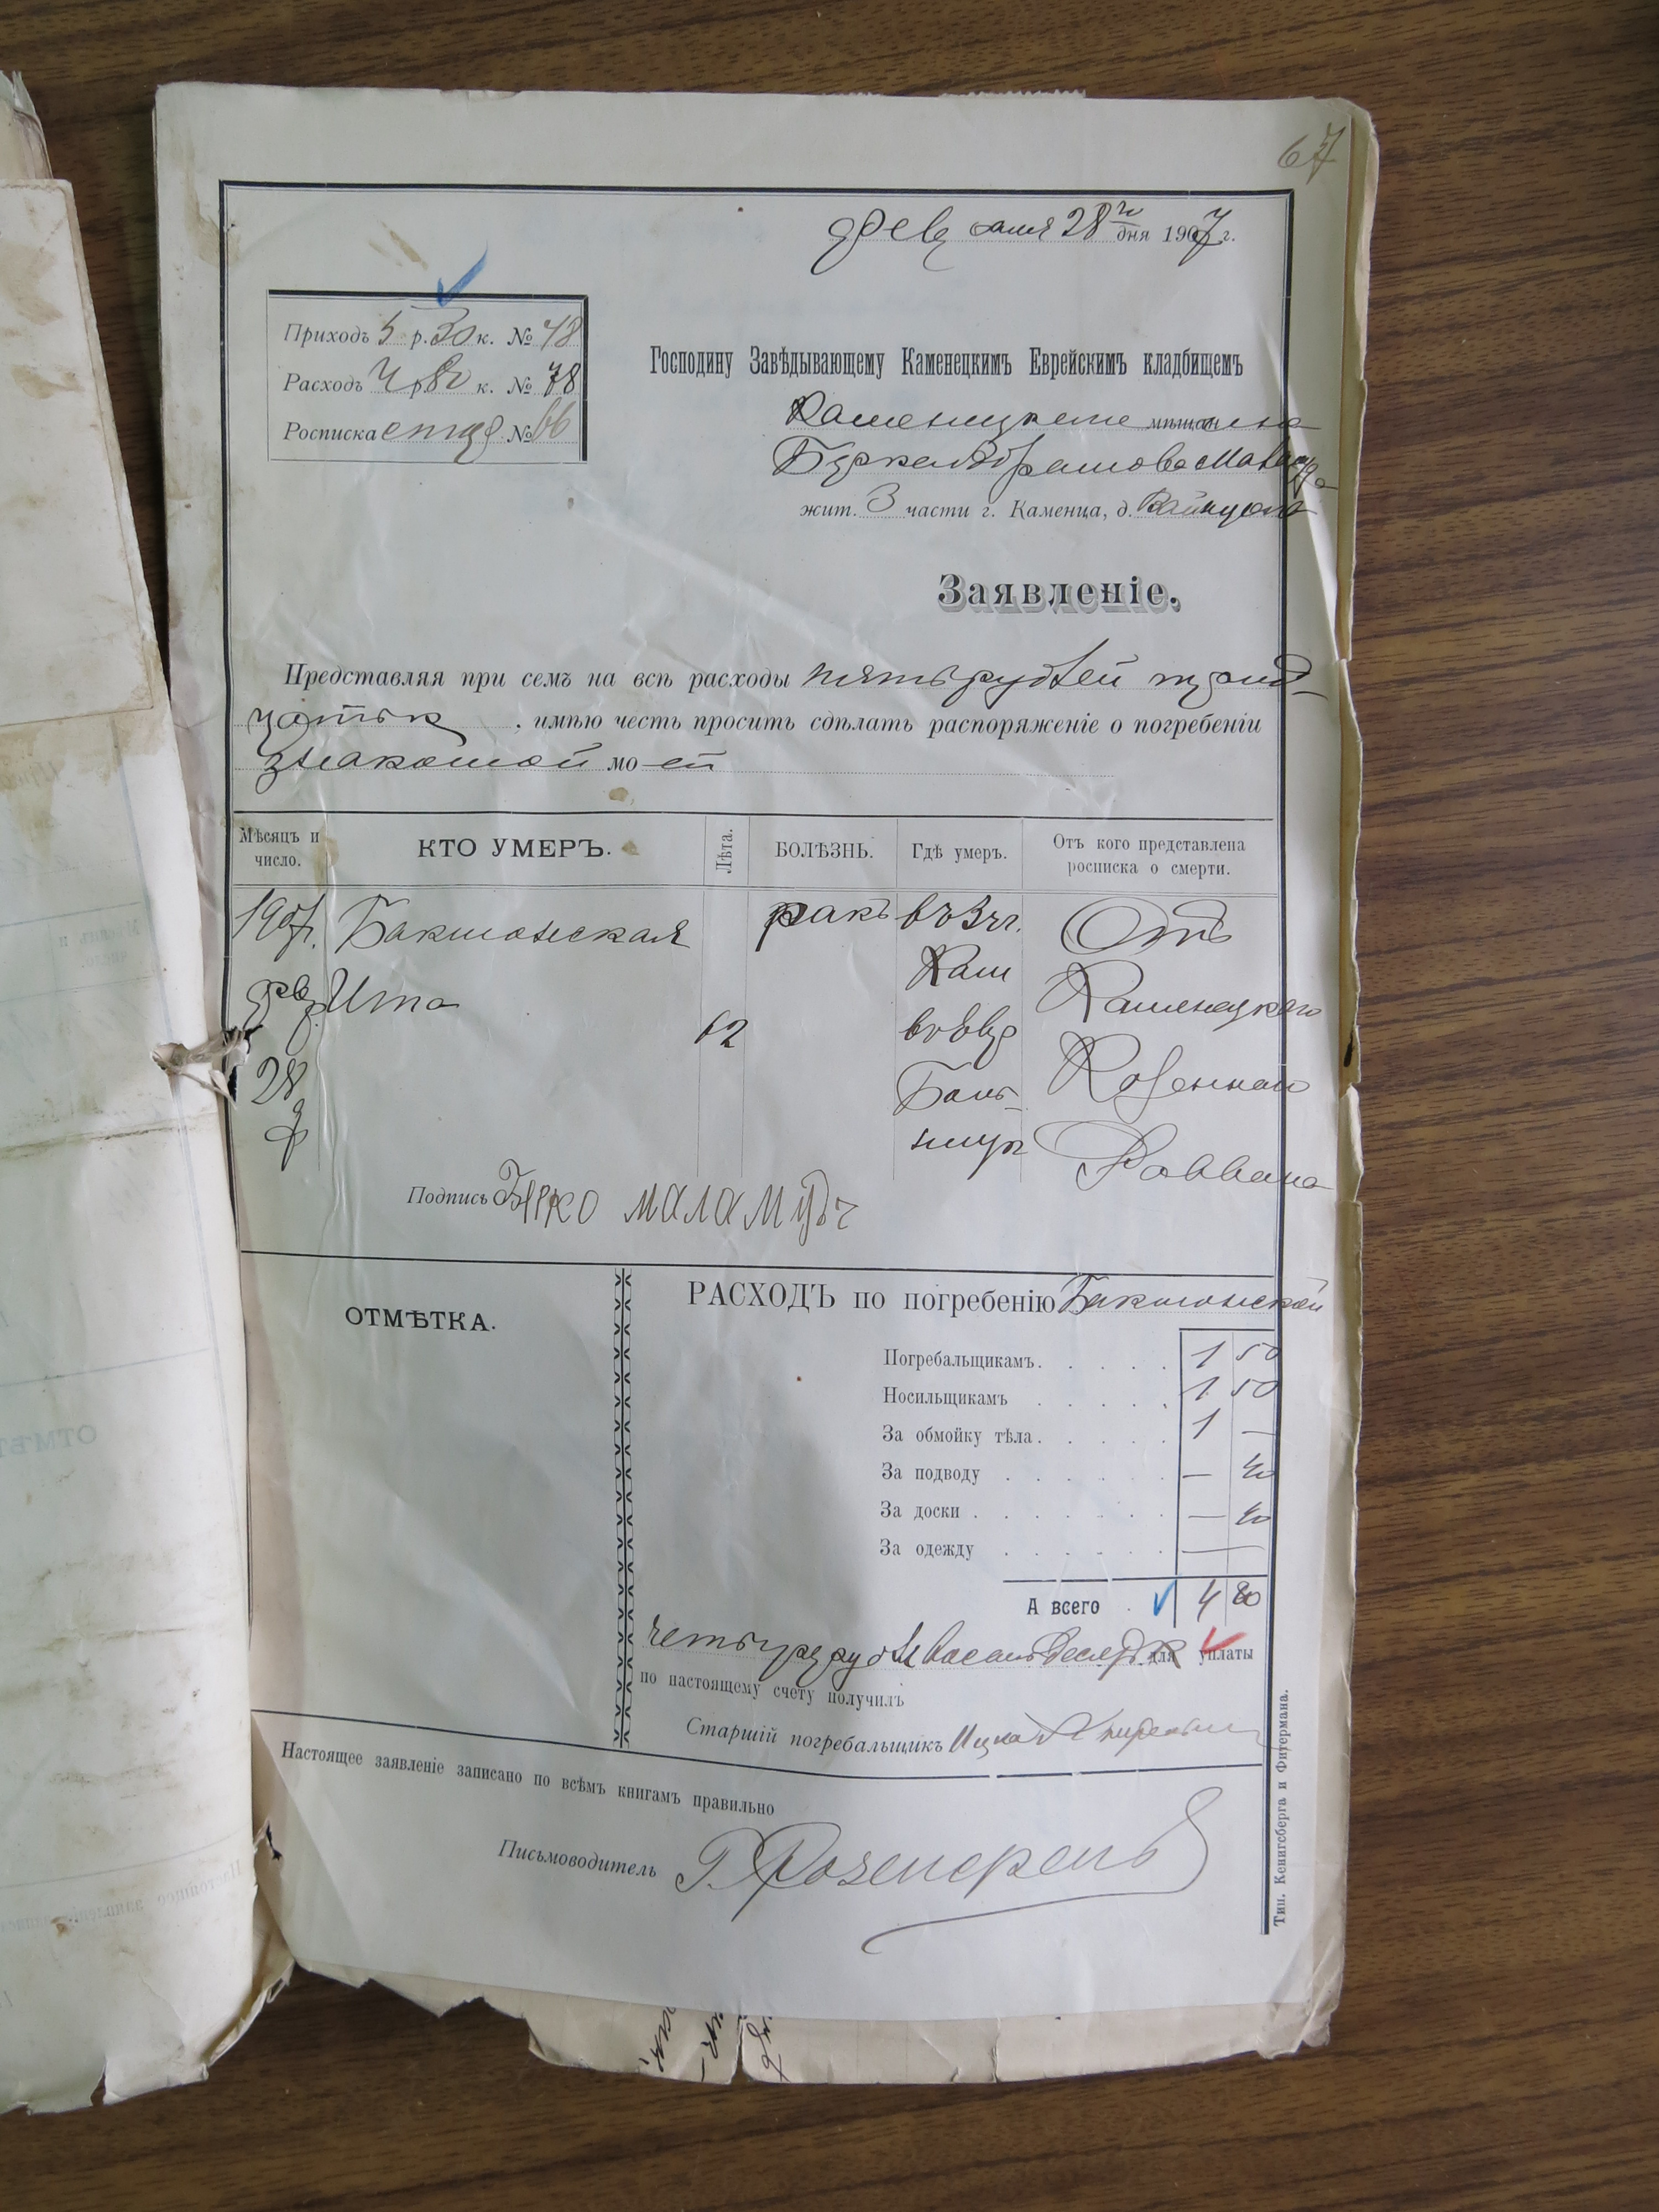 67
Февраля 28 го дня 1907 г.
Приходъ 5 р. 30 к. № 48
Расходъ 4 р 80 к. № 78
Росписка № 66
Господину Завѣдывающему Каменецкимъ Еврейскимъ кладбищемъ
мѣщан
жит. 3 части г. Каменца, д.
Заявленіе.
Представляя при семъ на всѣ расходы пять рублей трид-
цать к , имѣю честь просить сдѣлать распоряженіе о погребеніи
знакомой мо-ей
Мѣсяцъ и число. КТО УМЕРЪ. Лѣта. БОЛѢЗНЬ. Гдѣ умеръ. Отъ кого представлена росписка о смерти.
1907г. Бакшанская ракъ въ 3 ч. Отъ
фев Ита Кам Каменецкаго
62 въ евр Казеннаго
28 Боль- Раввина
ницѣ
Подпись Берко Маламудъ
ОТМѢТКА.
РАСХОДЪ по погребенію Бакшанской
Погребальщикамъ. 1 50
Носильщикамъ 1 50
За обмойку тѣла. 1 —
За подводу — 40
За доски . — 40
За одежду —
А всего 4 80
Четыре рубл восемьдесятъ к для уплаты
по настоящему счету получилъ
Старшій погребальщикъ Ицка
Настоящее заявленіе записано по всѣмъ книгамъ правильно
Письмоводитель Г. Розенкренъ
Тип. Кенигсберга и Фитермана.